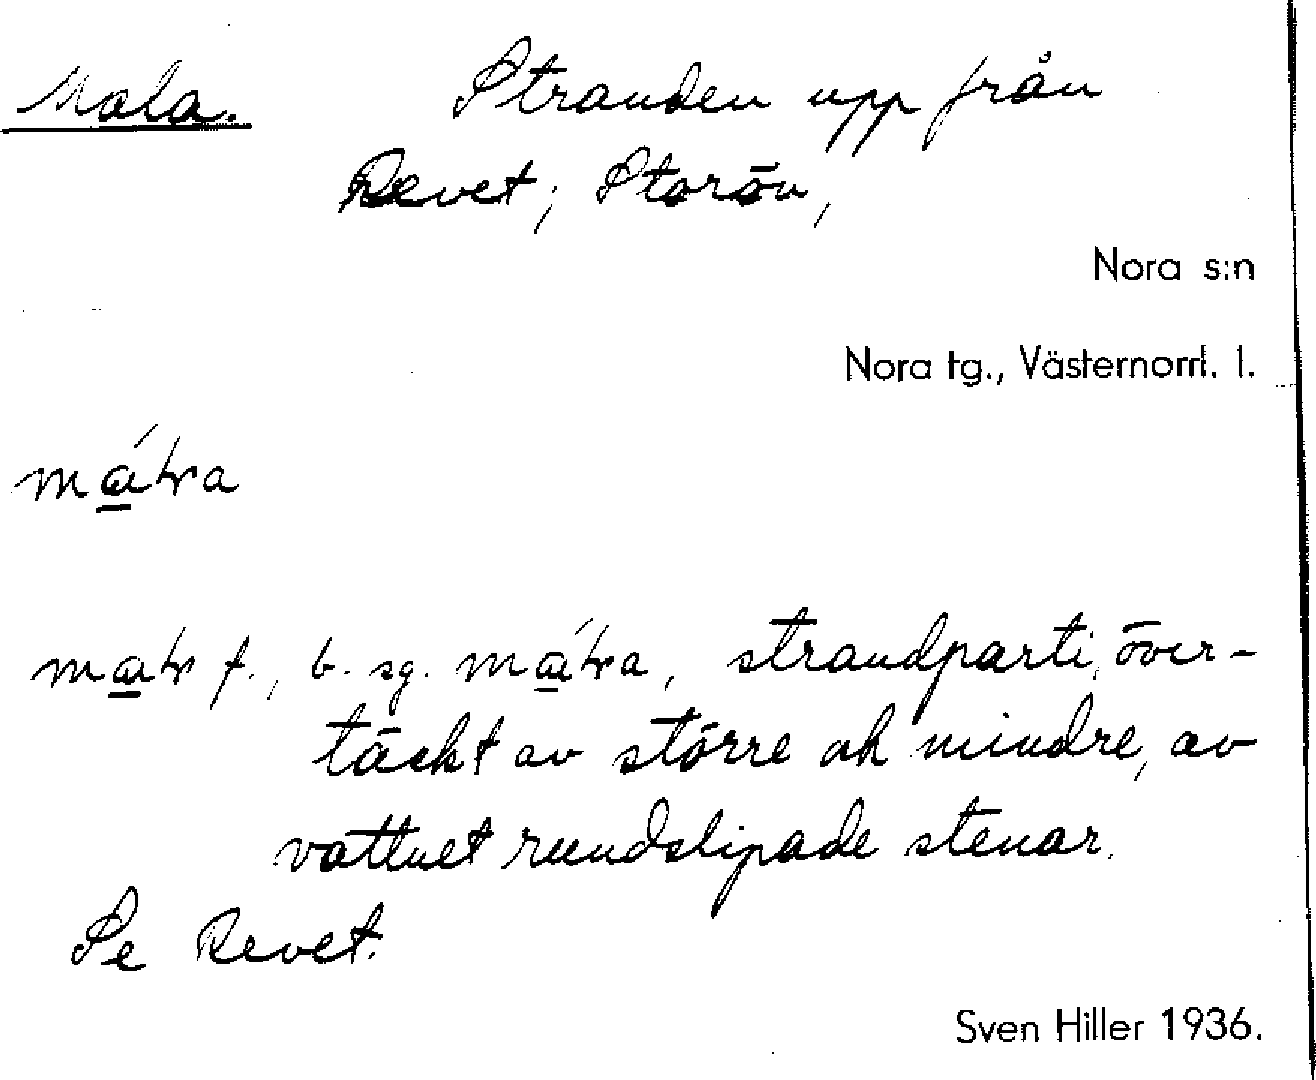 Mala. Stranden upp från
Revet; Storön,
Nora s:n
Nora tg., Västernorrl. l.
strandparti, över-
täckt av större och mindre, av
vattnet rundslipade stenar.
Se Revet.
Sven Hiller 1936.